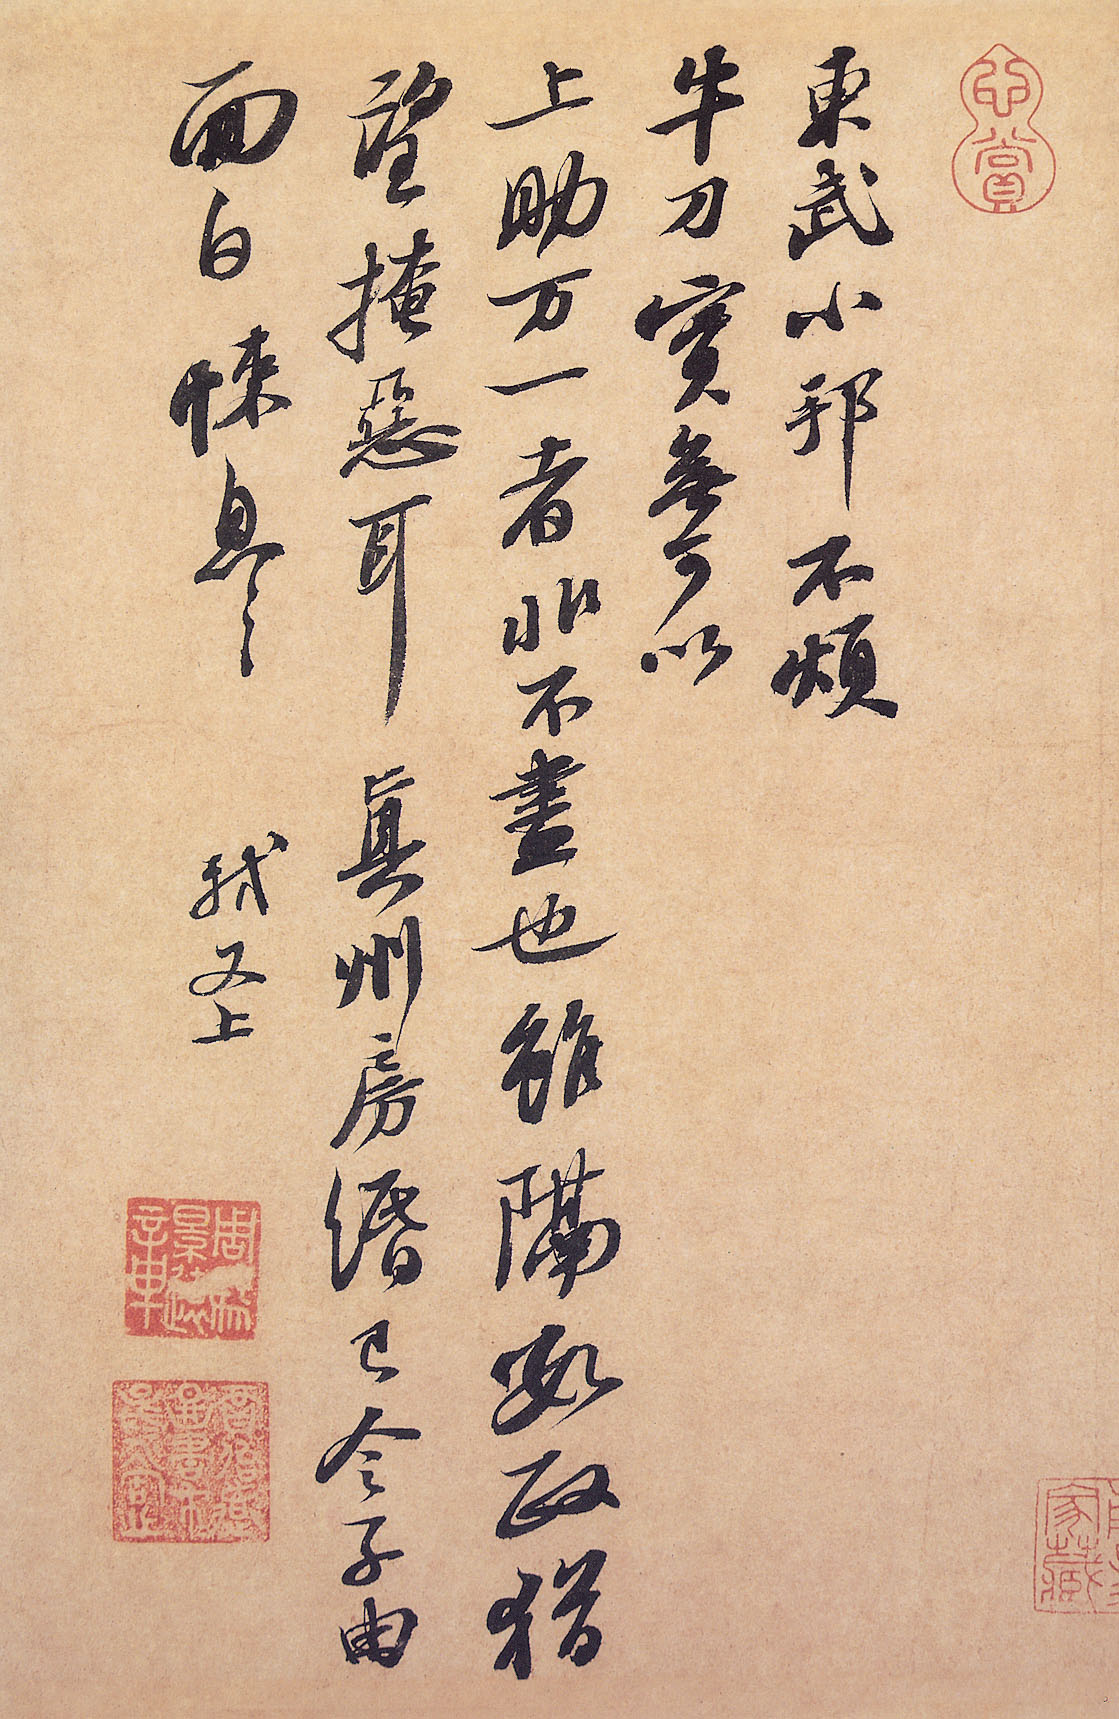 心賞
東武小邦不煩
牛刀實無可以
上助万一者非不盡也雖隔數政猶
望掩惡耳 眞州房緡已令子由
面白悚息〻 軾又上
家藏